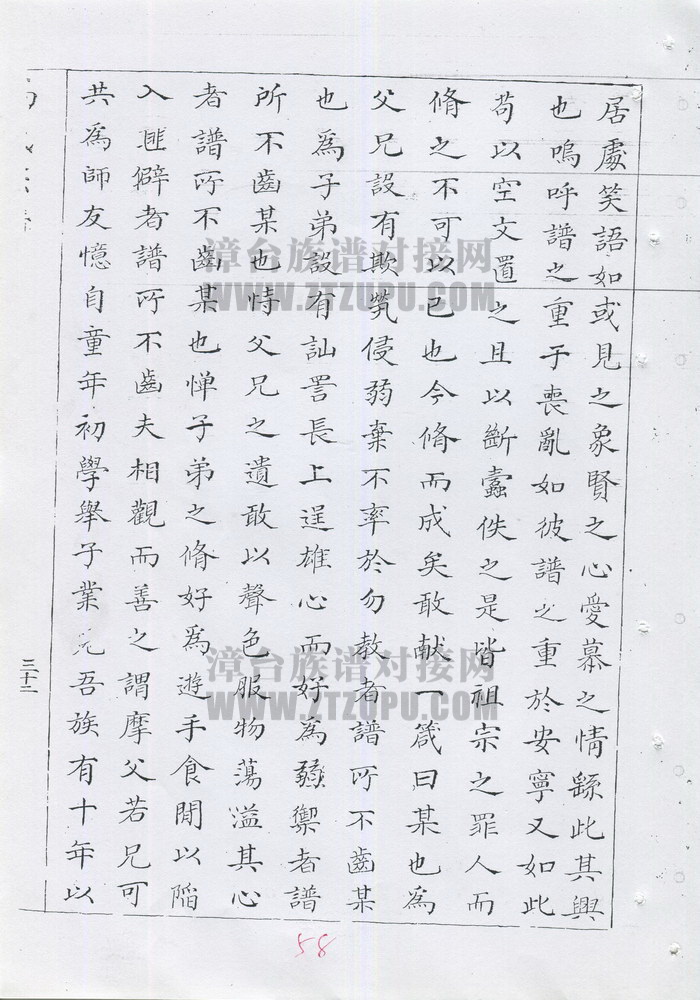 居處笑語如或見之象賢之心愛慕之情繇此其興
也嗚呼譜之重于喪亂如彼譜之重於安寧又如此
苟以空文置之且以斷蠹佚之是皆祖宗之罪人而
脩之不可以已也今脩而成矣敢献一箴曰某也為
父兄設有欺煢侵弱棄不率於勿教者譜所不齒某
也為子弟設有訕詈長上逞雄心而好為彊禦者譜
所不齒某也恃父兄之遺敢以聲色服物蕩溢其心
者譜所不齒某也憚子弟之脩好為遊手食閒以陷
入匪僻者譜所不齒夫相觀而善之謂摩父若兄可
共為師友憶自童年初學舉子業見吾族有十年以
三十二
58
漳台族谱对接网
WWW.ZTZUPU.COM
漳台族谱对接网
WWW.ZTZUPU.COM